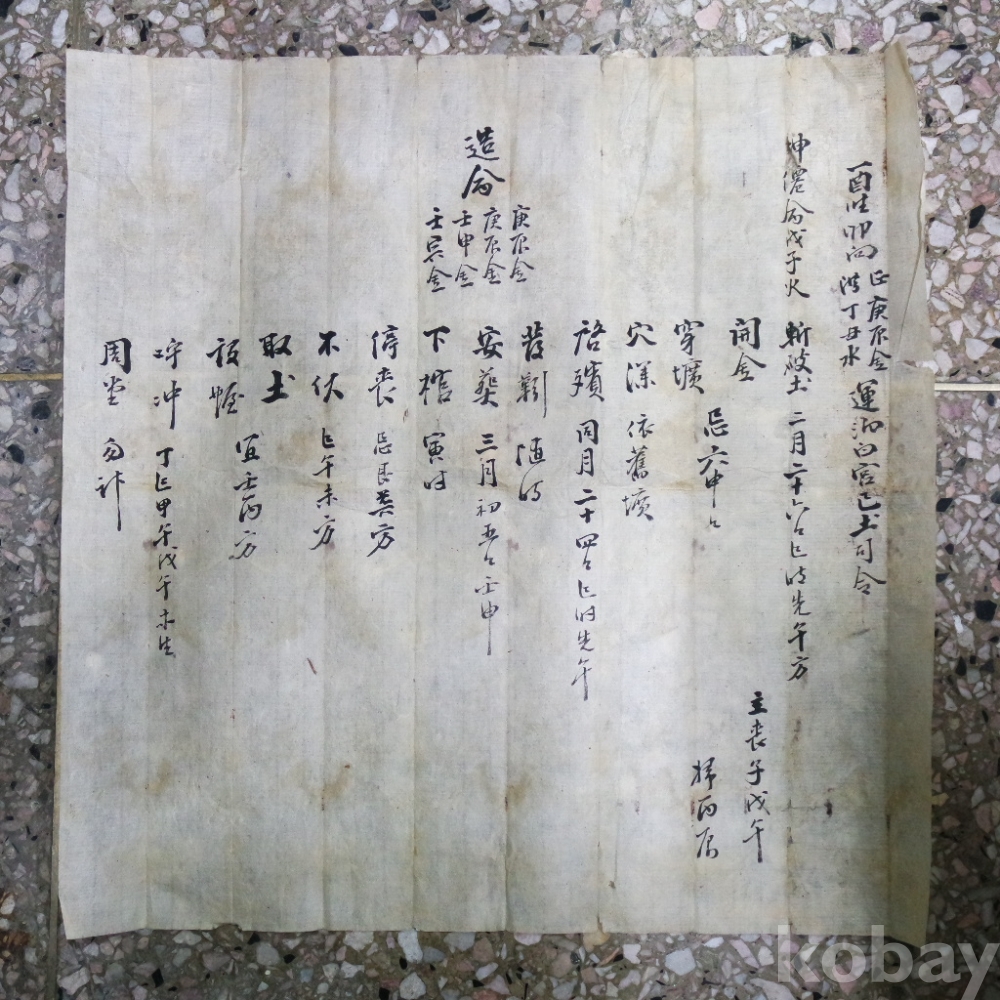 酉坐卯向 正庚辰金
洪丁丑水 運泊白宮己土司令
坤僊命戊子火 斬破土 二月二十六日巳時先午方
主喪子戊午
婦丙辰
開金
穿壙 忌六甲日
穴深 依舊壙
啓殯 同月二十四日巳時先午
發靷 隨時
造命 庚辰金
庚辰金
壬申金
壬寅金
安葬 三月初五日壬申
下棺 寅時
停喪 忌艮巽方
不伏 巳午未方
取土 宜壬丙方
設幄
呼冲 丁巳甲午戊午未生
周堂 勿計
kobay